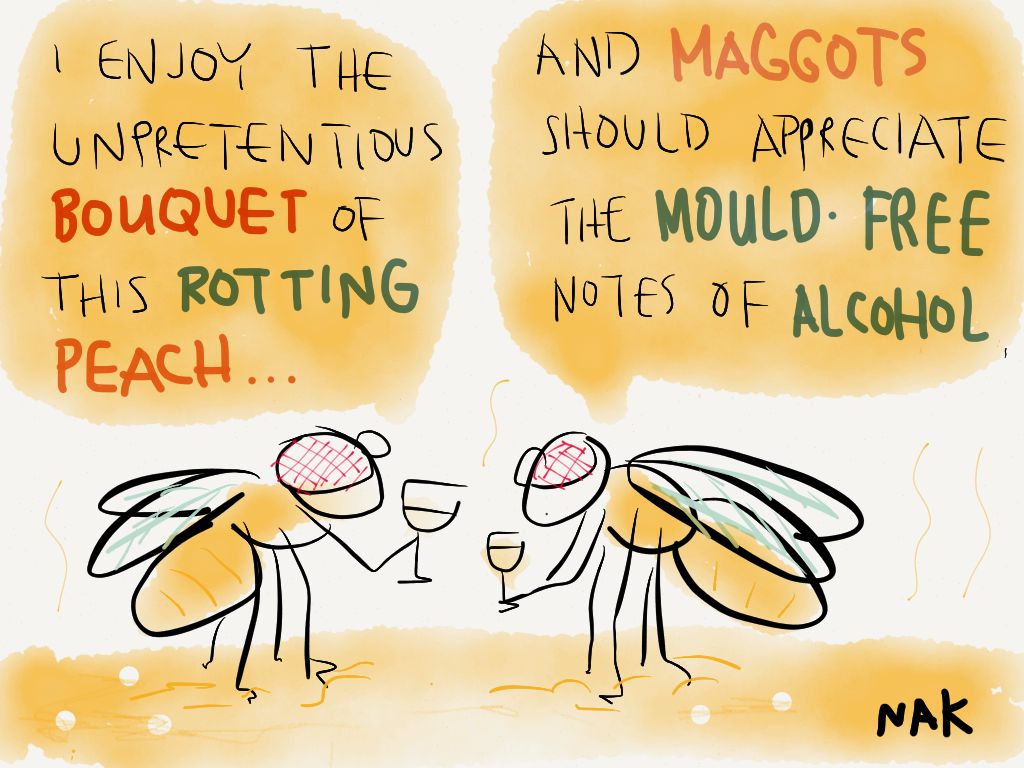 I ENJOY THE
UNPRETENTIOUS
BOUQUET OF
THIS ROTTING
PEACH...
AND MAGGOTS
SHOULD APPRECIATE
THE MOULD-FREE
NOTES OF ALCOHOL
NAK